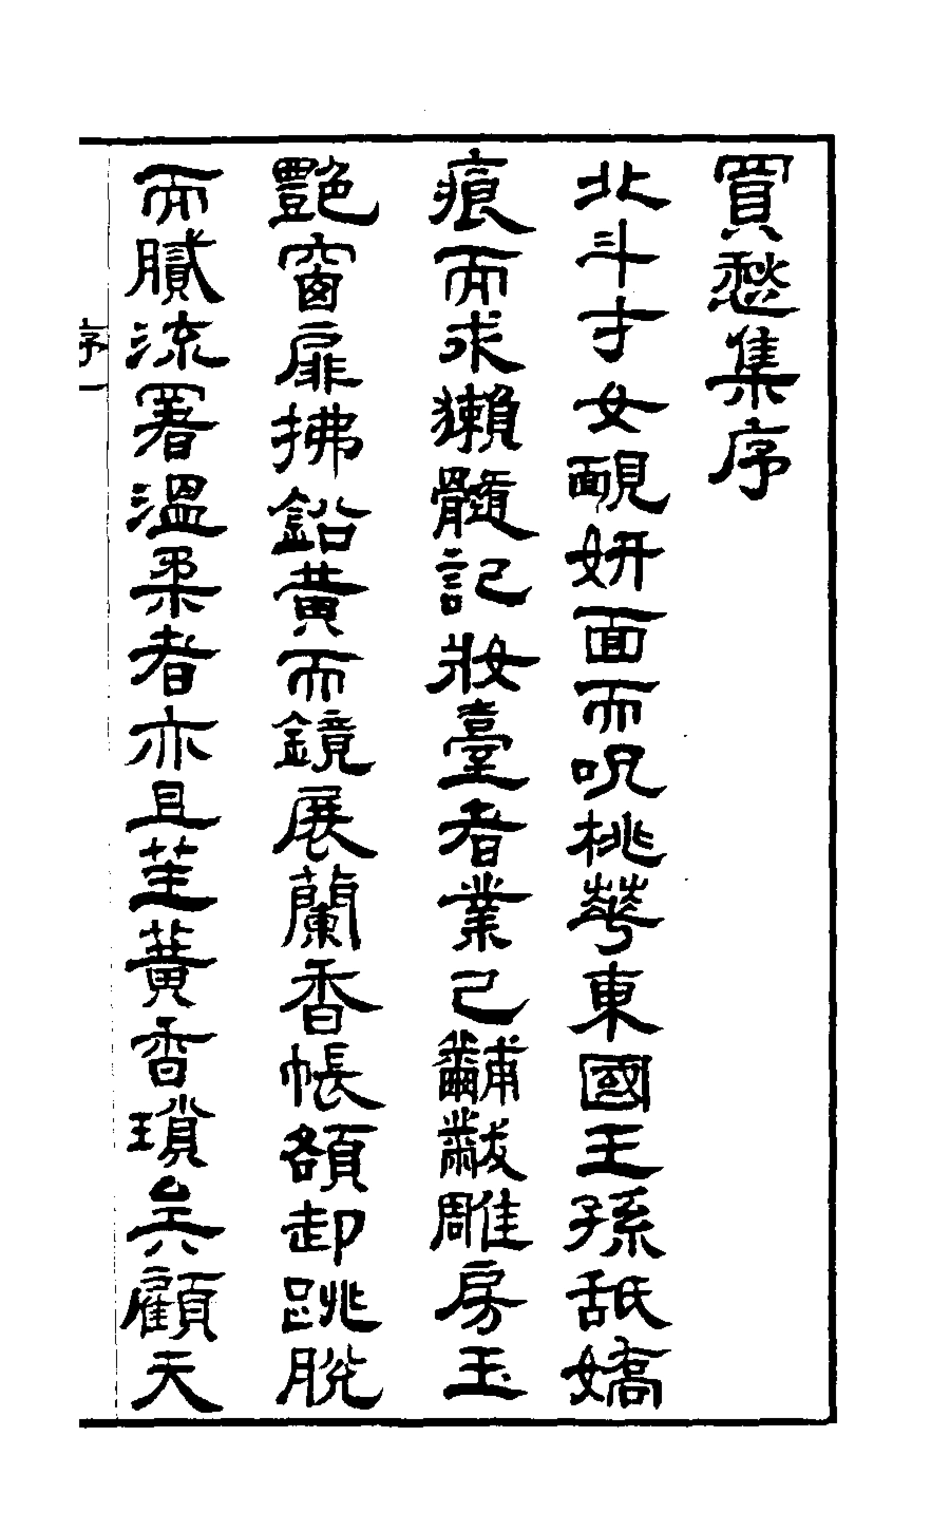 買愁集序
北斗才女靧妍面而呪桃蕚東國王孫舐嬌
痕而求獺髓記妝臺者業已黼黻雕房玉
艷窗扉拂鉛黃而鏡展蘭香帳額卸跳脫
而膩流署溫柔者亦且荃蕢香瑣矣顧天
序一